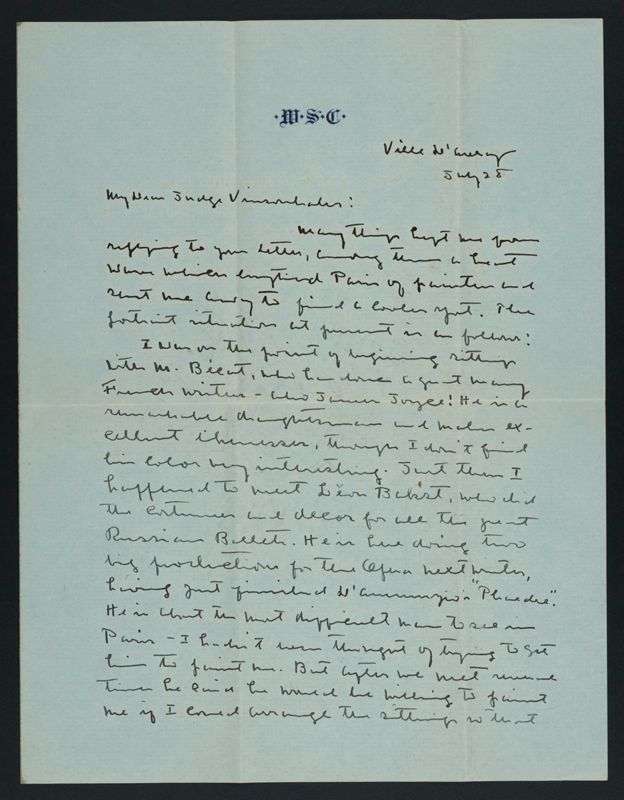 ·W·S·C·
Ville D'Avray
July 28
My Dear Judge Vinsonhaler:
Many things kept me from
replying to your letter, among them a heat
wave which emptied Paris of painters and
sent me away to find a cooler spot. The
portrait situation at present is as follows:
I was on the point of beginning sittings
with M. Bécat, who has done a great many
French writers - also James Joyce! He is a
remarkable draughtsman and makes ex-
cellent likenesses, though I don't find
his color very interesting. Just then I
happened to meet Léon Bakst, who did
the costumes and decor for all the great
Russian Ballets. He is here doing two
big productions for the Opera next winter,
having just finished D'Annunzio's "Phaedre".
He is about the most difficult man to see in
Paris - I hadn't even thought of trying to get
him to paint me. But after we met several
times he said he would be willing to paint
me if I could arrange the sittings so that